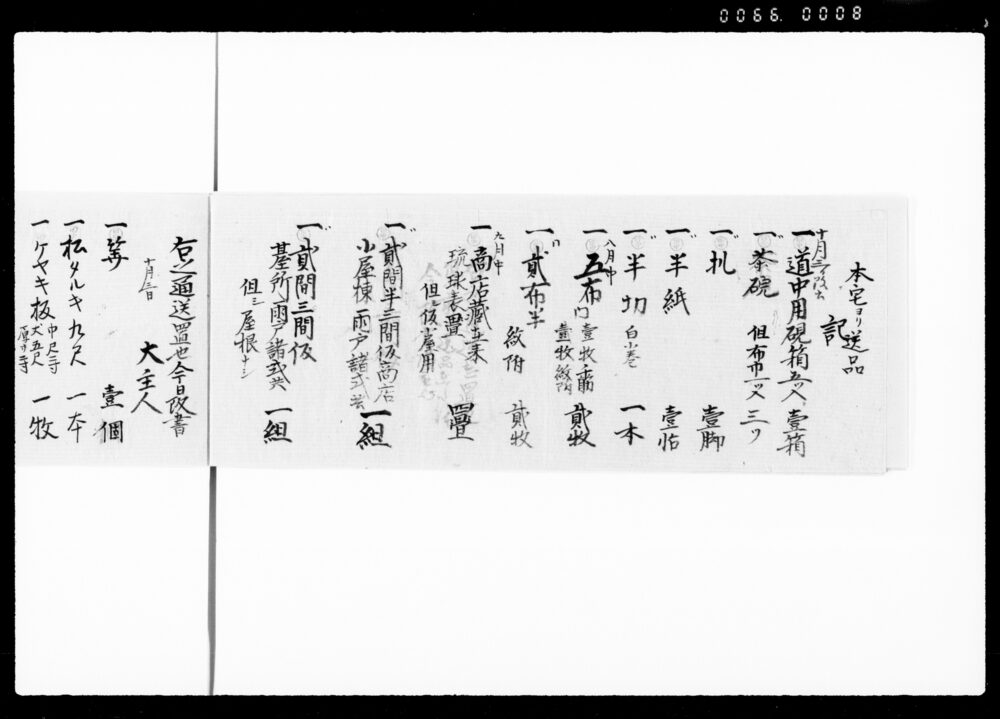 0066. 0008
本宅ヨリ送品
記
十月三日改出
一 道中用硯箱 壹箱
一 茶碗 但布巾 三ツ
一 札 壹脚
一 半紙 壹帖
一 半切 白小巻 一本
八月中
一 五布 貳枚
一 貳布半 紋附 貳枚
九月中
一 商店藏
琉球表疊 四疊
但仮屋用
一 貳間半三間仮商店
小屋棟雨戸諸式共 一組
一 貳間三間仮
墓所雨戸諸式共 一組
但シ屋根ナシ
右之通送置也今日改書
十月三日
大主人
一 壹個
一 松タルキ九尺 一本
一 ケヤキ板 一枚